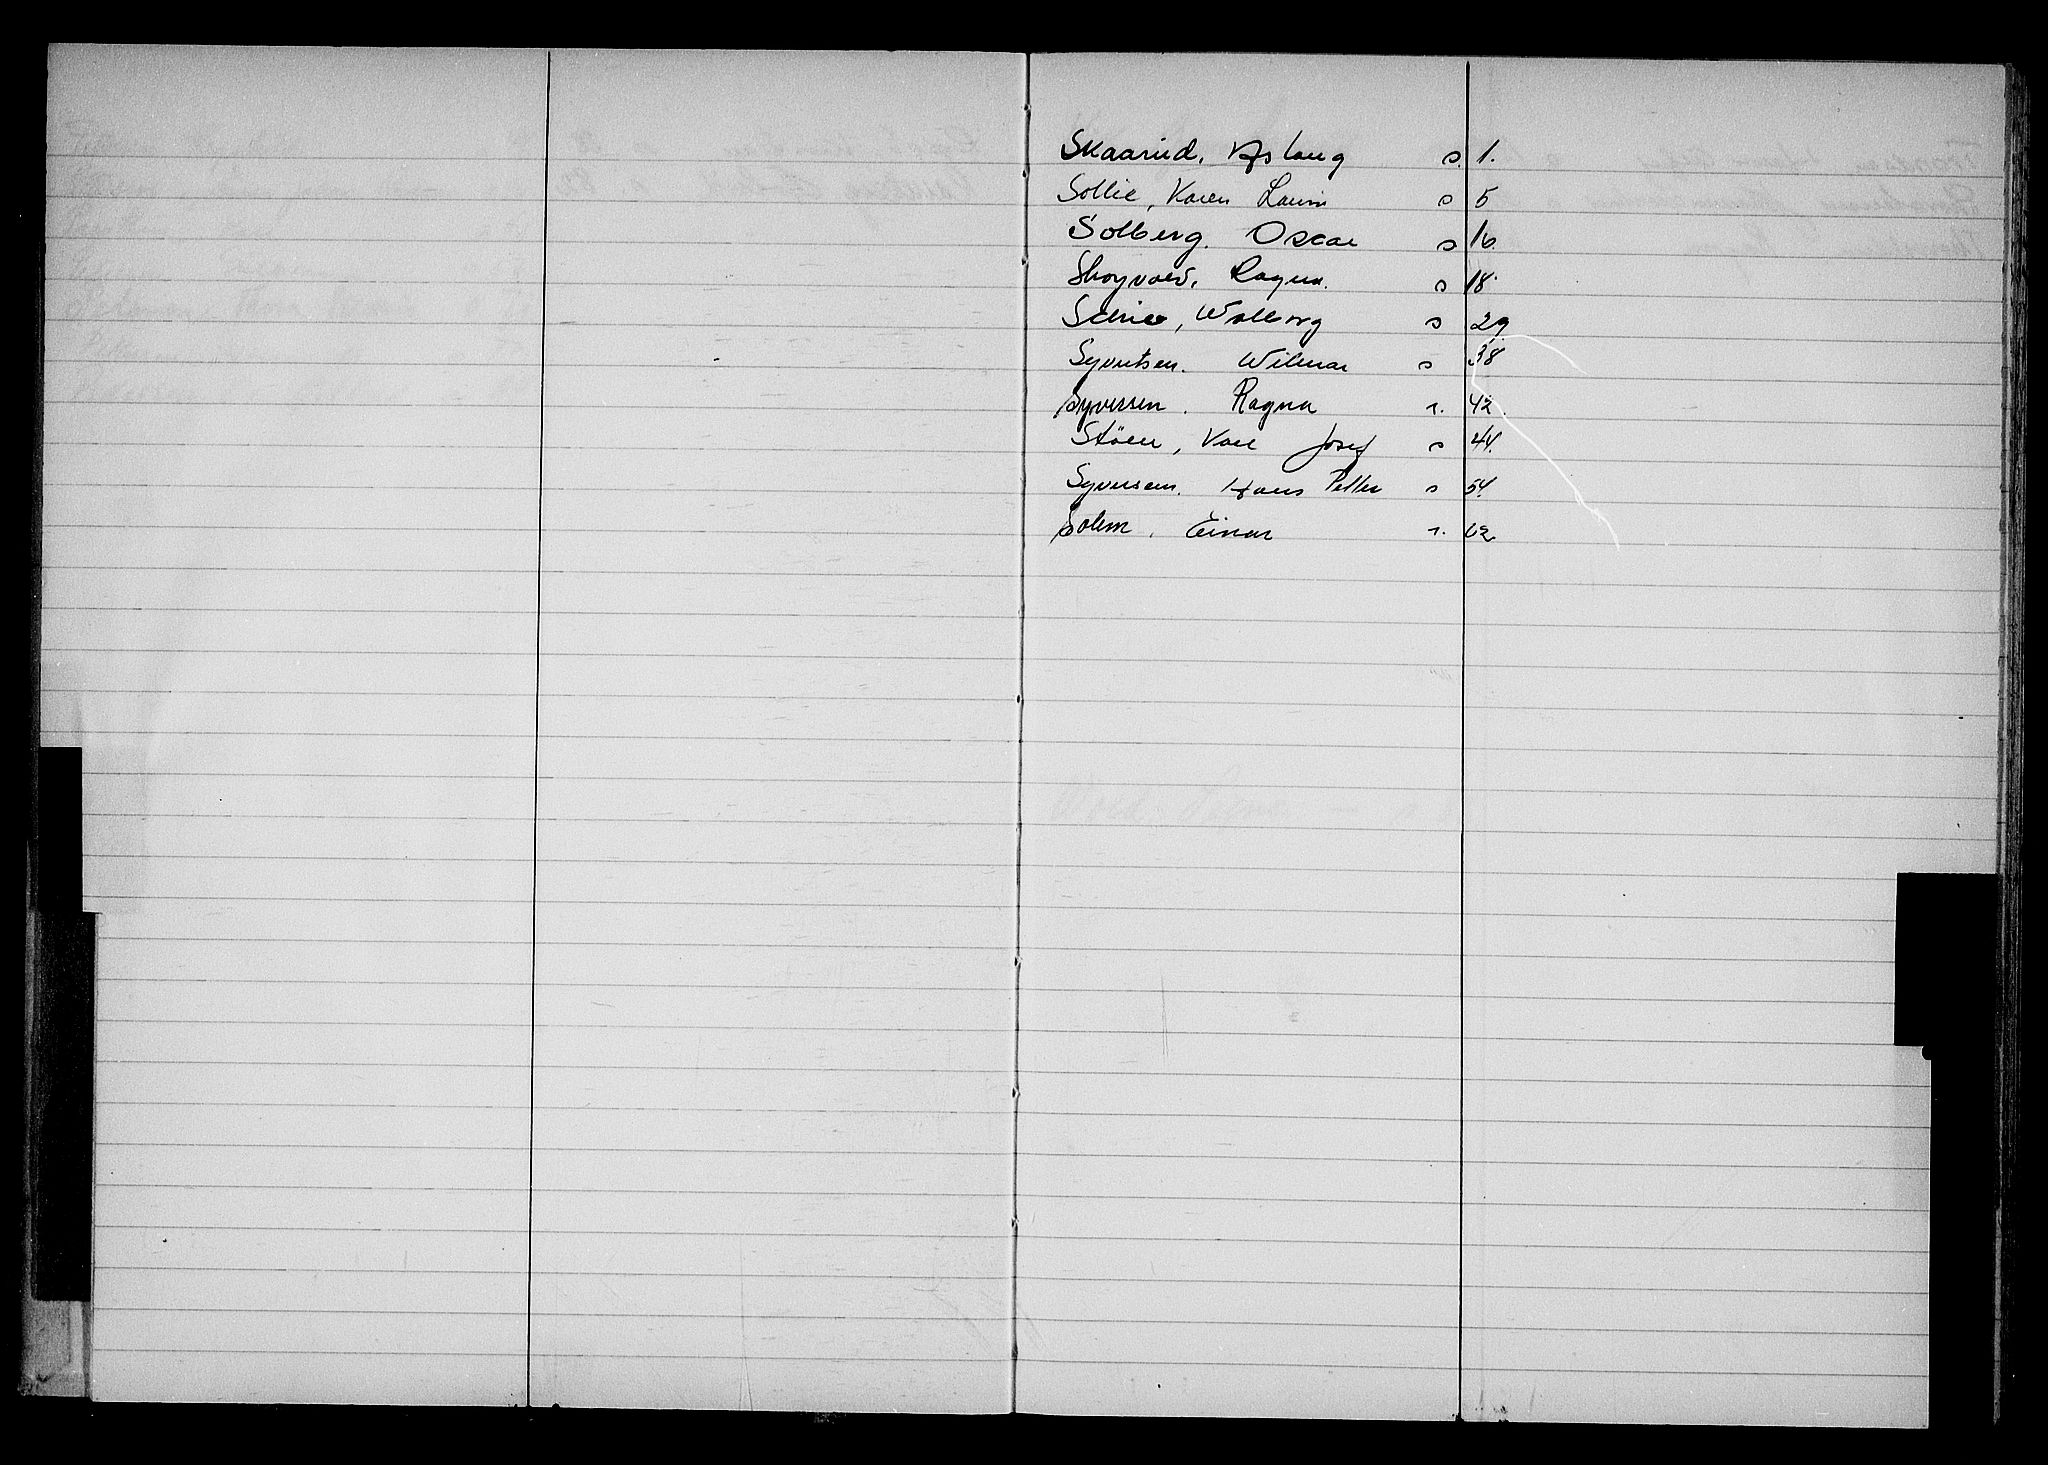 Skaarud, Aslaug s. 1.
Sollie, Karen Laurn s 5
Solberg. Oscar s 16.
Skogvold, Ragna. s 18.
Schie, Walborg s 29
Syvertsen. Wilmar s 38
Syversen. Ragna s. 42.
Støen, Karl Josef s 44.
Syversen. Hans Petter s 54.
Solem. Einar s. 62